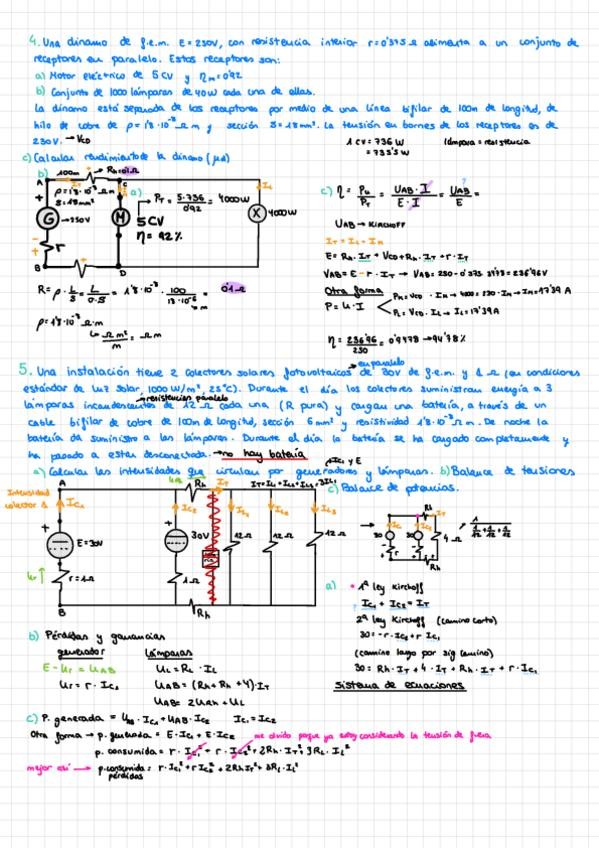 4. Una dinamo de f.e.m. E=250V, con resistencia interior r=0'375 Ω alimenta a un conjunto de
receptores en paralelo. Estos receptores son:
a) Motor eléctrico de 5CV y ηm=0'92
b) Conjunto de 1000 lámparas de 40W cada una de ellas.
La dinamo está separada de los receptores por medio de una línea bifilar de 100m de longitud, de
hilo de cobre de ρ=1'8·10⁻⁸ Ωm y sección S=18mm². La tensión en bornes de los receptores es de
230V. → VCD
1CV = 736W
= 735'5W
lámpara = resistencia
c) Calcular rendimiento de la dinamo (μd)
b)
100m
Rh=0'1Ω
A
IT
C
a)
IL
ρ=1'8·10⁻⁸ Ωm
S=18mm²
PT = 5·736/0'92 = 4000W
G → 250V
M
5CV
η=92%
X 4000W
r
B
D
R = ρ·L/S = 1'8·10⁻⁸ · 100/18·10⁻⁶ = 0'1Ω
ρ=1'8·10⁻⁸ Ωm
Ωm²/m = Ωm
c) η = Pu/PT = UAB·I/E·I = UAB/E =
UAB → KIRCHOFF
E = Rh·IT + VCD + Rh·IT + r·IT
Otra forma
P = U·I
PL = VCD·IL → IL = 17'39A
η = 236'96/250 = 0'9478 → 94'78%
5. Una instalación tiene 2 colectores solares fotovoltaicos de 30V de f.e.m. y 1Ω (en condiciones
en paralelo
estándar de luz solar, 1000W/m², 25°C). Durante el día los colectores suministran energía a 3
resistencias paralelo
lámparas incandescentes de 12Ω cada una (R pura) y cargan una batería, a través de un
cable bifilar de cobre de 100m de longitud, sección 6mm² y resistividad 1'8·10⁻⁸ Ωm. De noche la
batería da suministro a las lámparas. Durante el día la batería se ha cargado completamente y
ha pasado a estar desconectada. → no hay batería
a) Calcular las intensidades que circulan por generadores y lámparas. b) Balance de tensiones
c) Balance de potencias.
A
Rh
IT
Intensidad
colector 1
IC1
IC2
IL1
IL2
IL3
E=30V
30V
12Ω
12Ω
12Ω
Ur
r=1Ω
1Ω
B
Rh
Rh
IT
30
30
4Ω
r
r
Rh
a)
1ª ley Kirchoff
IC1 + IC2 = IT
2ª ley Kirchoff (camino corto)
30 = -r·IC2 + r·IC1
(camino largo por sig camino)
30 = Rh·IT + 4·IT + Rh·IT + r·IC1
sistema de ecuaciones
b) Pérdidas y ganancias
generador
lámparas
E - Ur = UAB
UL = RL·IL
Ur = r·IC1
UAB = (Rh+Rh+4)·IT
UAB = 2URh + UL
c) P. generada = UAB·IC1 + UAB·IC2
IC1 = IC2
Otra forma → p. generada = E·IC1 + E·IC2
me olvido porque ya estoy considerando la tensión de fuera
p. consumida = r·IC1² + r·IC2² + 2Rh·IT² + 3RL·IL²
mejor así → p. consumida = r·IC1² + r·IC2² + 2Rh·IT² + 3RL·IL²
pérdidas